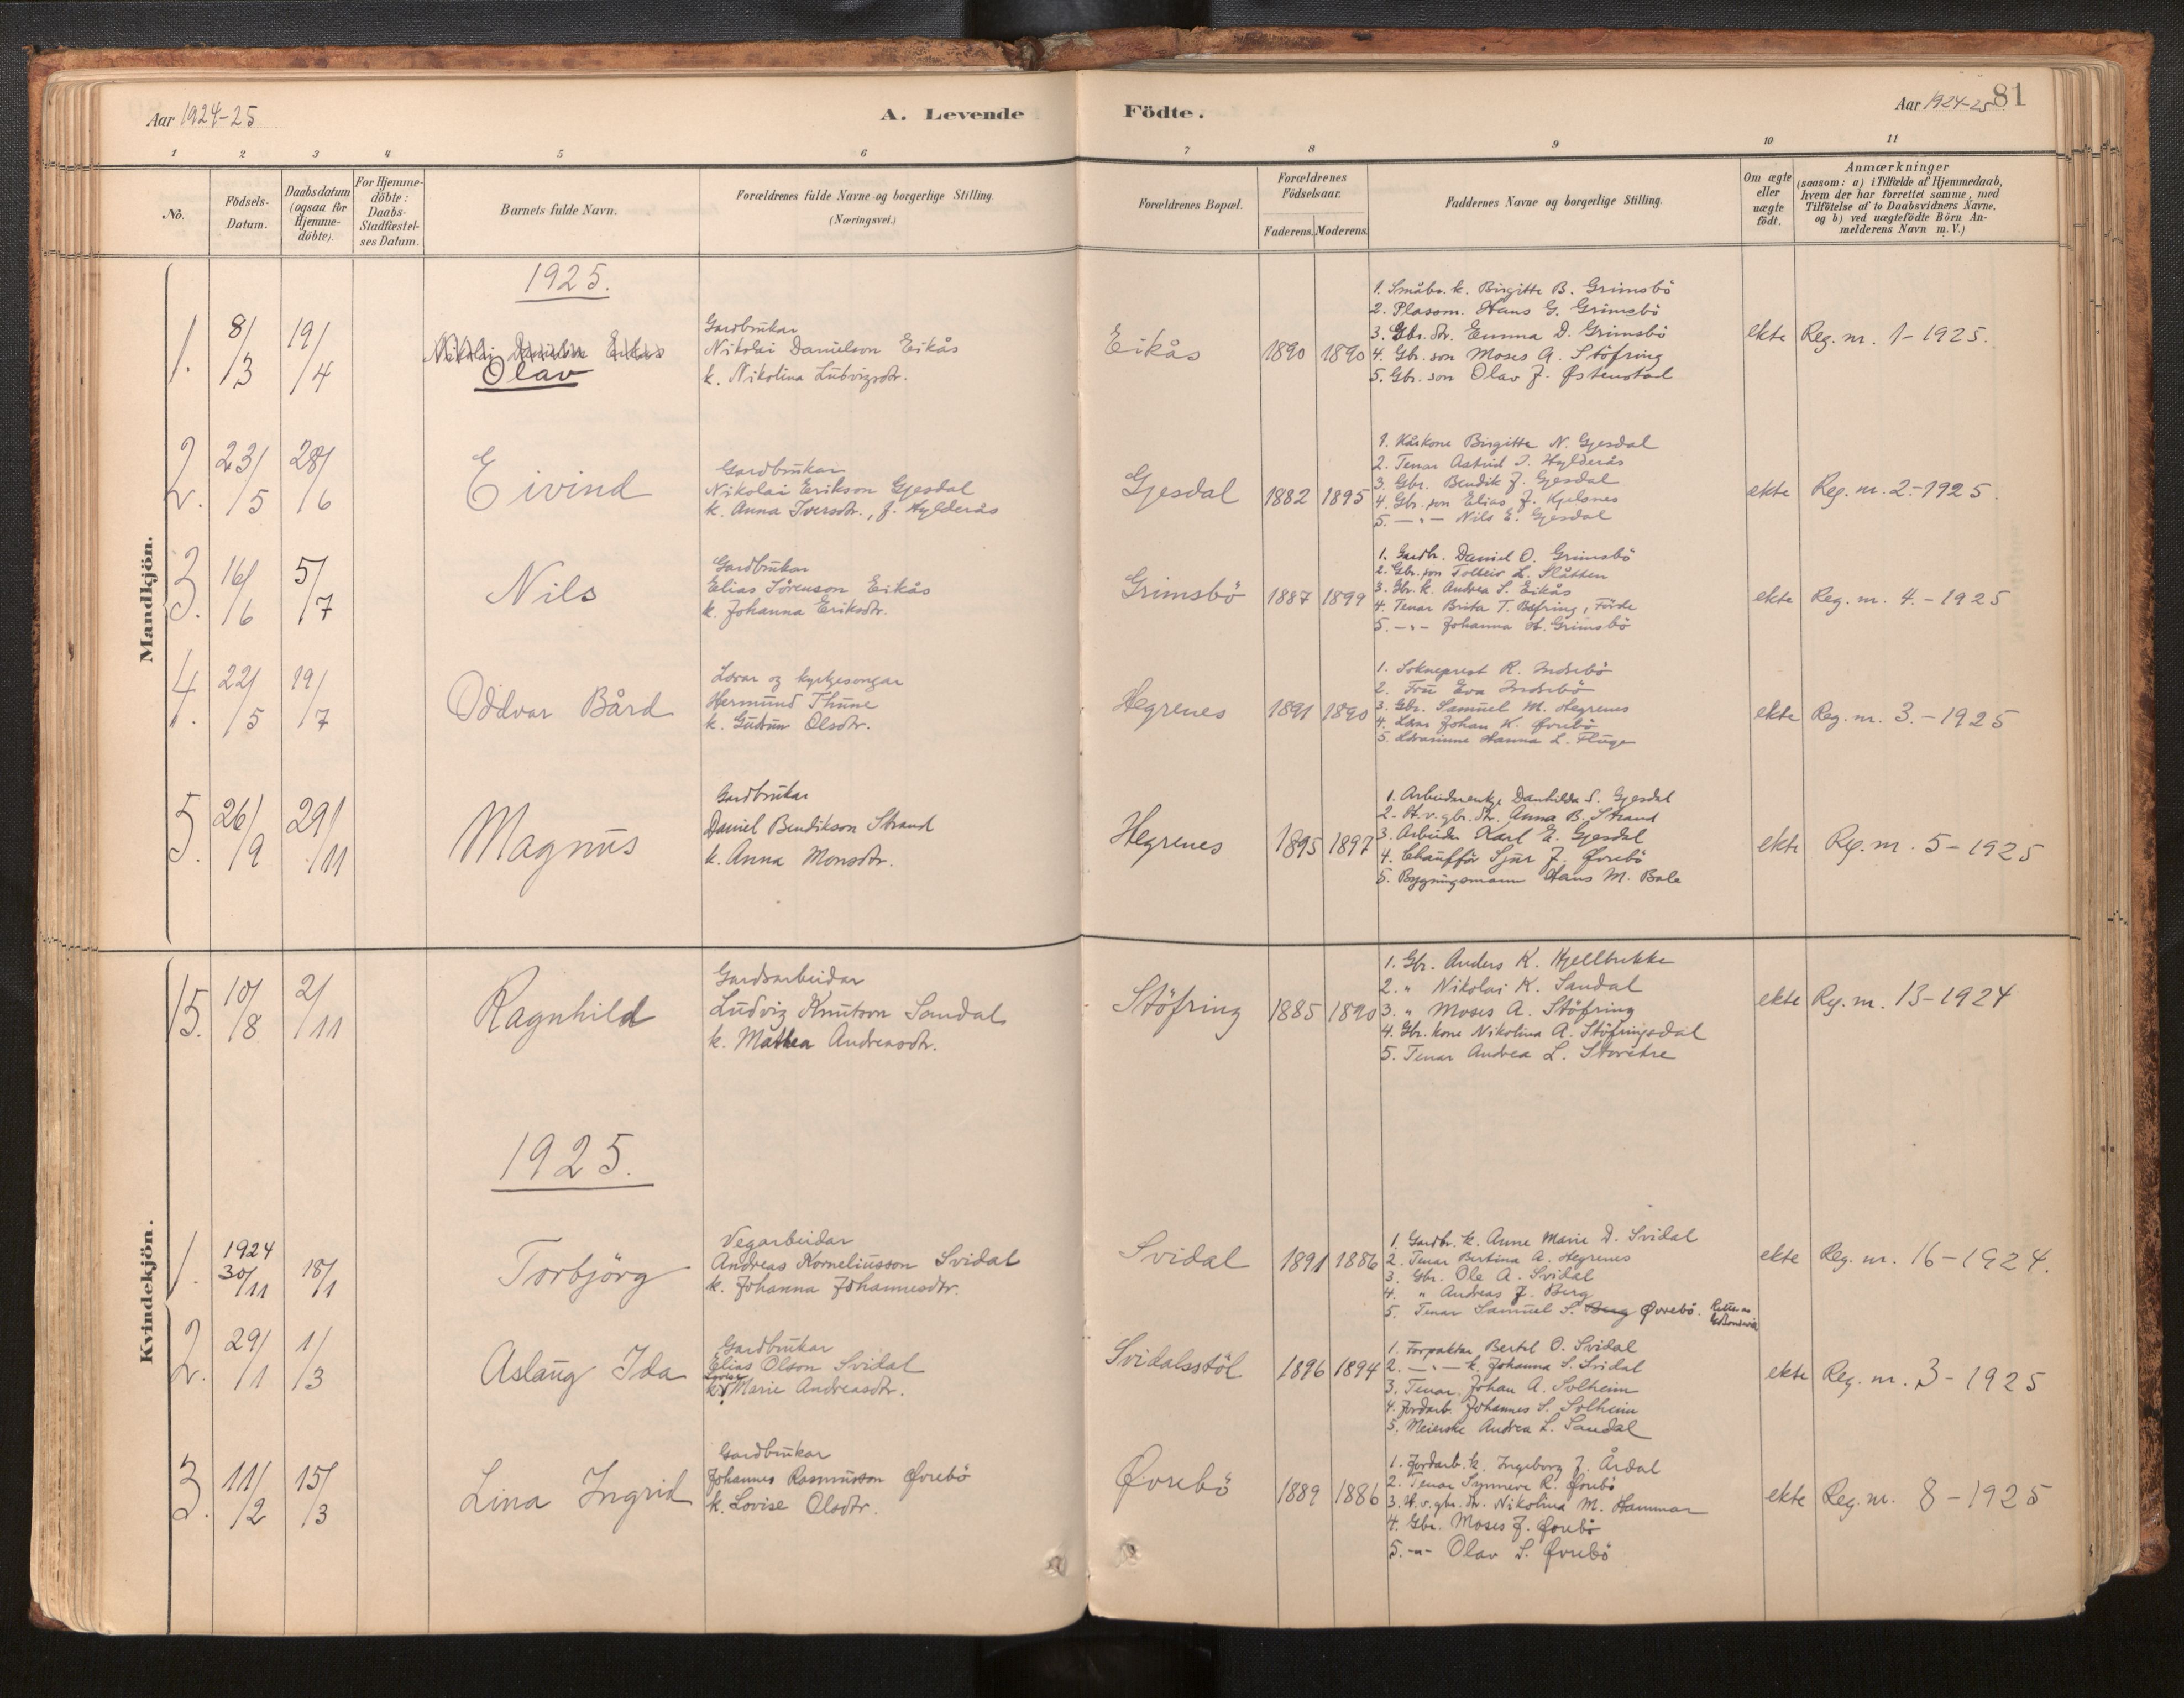 Aar 1924-25
A. Levende
Födte.
Aar 1924-25
81
1 2 3 4 5 6 7 8 9 10 11
No.
Födsels-Datum.
Daabsdatum (ogsaa for Hjemme-döbte).
For Hjemme-döbte: Daabs-Stadfæstel-ses Datum.
Barnets fulde Navn.
Forældrenes fulde Navne og borgerlige Stilling.
(Næringsvei.)
Forældrenes Bopæl.
Forældrenes Födselsaar.
Faderens. Moderens.
Faddernes Navne og borgerlige Stilling.
Om ægte eller uægte födt.
Anmærkninger
(saasom: a) i Tilfælde af Hjemmedaab,
hvem der har forrettet samme, med
Tilföielse af to Daabsvidners Navne.
og b) ved uægtefödte Börn An-
melderens Navn m. V.)
Mandkjön.
1925.
1. 8/3 19/4
Nikolai Danielson Eikås
Olav
Gardbrukar
Nikolai Danielson Eikås
k. Nikolina Ludvigsdtr.
Eikås 1890 1890
1. Småbr. k. Birgitte B. Grimsbö
2. Plasom. Hans G. Grimsbö
3. Gbr. dtr. Emma D. Grimsbö
4. Gbr. son Moses A. Stöfring
5. Gbr. son Olav J. Østenstad
ekte Reg. nr. 1-1925.
2. 23/5 28/6
Eivind
Gardbrukar
Nikolai Erikson Gjesdal
k. Anna Iversdtr., f. Hylderås
Gjesdal 1882 1895
1. Kårkone Birgitte N. Gjesdal
2. Tenar Astrid I. Hylderås
3. Gbr. Bendik J. Gjesdal
4. Gbr. son Elias J. Kjelsnes
5. —„— Nils E. Gjesdal
ekte Reg. nr. 2.-1925.
3. 16/6 5/7
Nils
Gardbrukar
Elias Sörenson Eikås
k. Johanna Eriksdtr.
Grimsbö 1887 1899
1. Gardbr. Daniel O. Grimsbö
2. Gbr. son Tolleiv L. Slåtten
3. Gbr. k. Andrea S. Eikås
4. Tenar Brita T. Bæfring, Förde
5. —„— Johanna H. Grimsbö
ekte Reg. nr. 4.-1925
4. 22/5 19/7
Oddvar Bård
Lærar og kyrkjesongar
Hermund Thune
k. Gudrun Olsdtr.
Hegrenes 1891 1890
1. Sokneprest R. Indrebö
2. Fru Eva Indrebö
3. Gbr. Samuel M. Hegrenes
4. Lærar Johan K. Øvrebö
5. Lærarinne Hanna L. Fluge
ekte Reg. nr. 3.-1925
5. 26/9 29/11
Magnus
Gardbrukar
Daniel Bendikson Strand
k. Anna Monsdtr.
Hegrenes 1895 1897
1. Arbeidarenkje Danhilda S. Gjesdal
2. H.v.gbr. dtr. Anna B. Strand
3. Arbeider Karl E. Gjesdal
4. Chaufför Sjur J. Øvrebö
5. Bygningsmann Hans M. Bale
ekte Reg. nr. 5-1925
Kvindekjön.
15. 10/8 2/11
Ragnhild
Gardsarbeidar
Ludvig Knutson Sandal
k. Mathea Andreasdtr.
Stöfring 1885 1890
1. Gbr. Anders K. Kjellbrekke
2. " Nikolai K. Sandal
3. " Moses A. Stöfring
4. Gbr. kone Nikolina A. Stöfringsdal
5. Tenar Andrea L. Storetre
ekte Reg. nr. 13-1924
1925.
1. 1924 30/11 18/1
Torbjörg
Vegarbeidar
Andreas Korneliusson Svidal
k. Johanna Johannesdtr.
Svidal 1891 1886
1. Gardbr. k. Anne Marie D. Svidal
2. Tenar Bertina A. Hegrenes
3. Gbr. Ole A. Svidal
4. " Andreas J. Berg
5. Tenar Samuel S. Berg Øvrebö.
ekte Reg. nr. 16-1924.
2. 29/1 1/3
Aslaug Ida
Gardbrukar
Elias Olson Svidal
Lovise
k. Marie Andreasdtr.
Svidalsstöl 1896 1894
1. Forpaktar Bertil O. Svidal
2. —„— k. Johanna S. Svidal
3. Tenar Johan A. Solheim
4. Jordarb. Johannes S. Solheim
5. Meierske Andrea L. Sandal
ekte Reg. nr. 3-1925
3. 11/2 15/3
Lina Ingrid
Gardbrukar
Johannes Rasmusson Øvrebö
k. Lovise Olsdtr.
Øvrebö 1889 1886
1. Jordarb. k. Ingeborg J. Årdal
2. Tenar Synneve R. Øvrebö
3. H.v.gbr. dtr. Nikolina M. Hammar
4. Gbr. Moses J. Øvrebö
5. —„— Olav S. Øvrebö
ekte Reg. nr. 8-1925